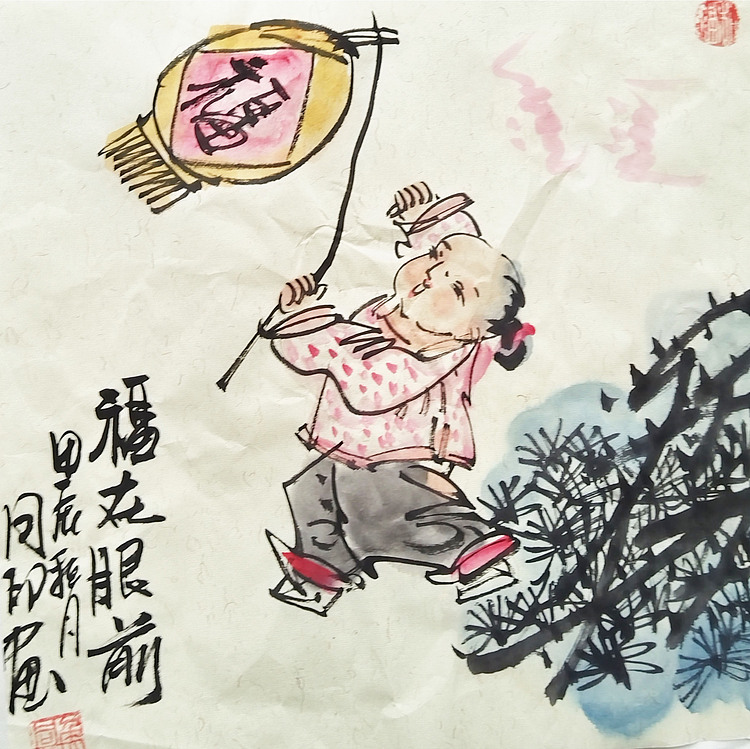 福
福在眼前
甲辰秋月
同印画